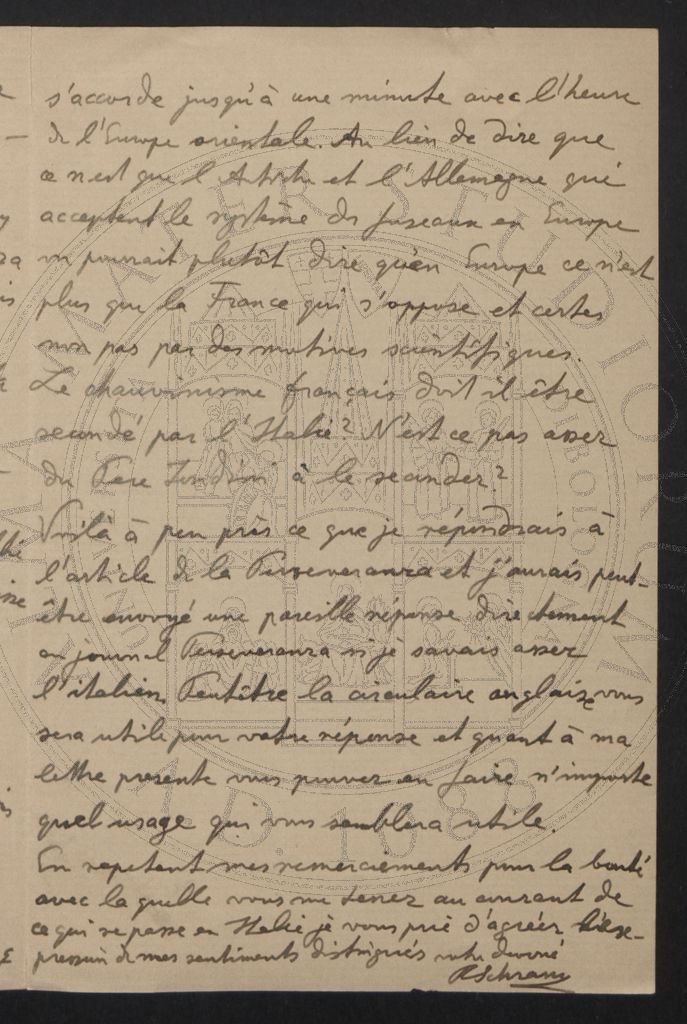 s'accorde jusqu'à une minute avec l'heure
de l'Europe orientale. Au lieu de dire que
ce n'est que l'Autriche et l'Allemagne qui
acceptent le système des fuseaux en Europe
on pourrait plutôt dire qu'en Europe ce n'est
plus que la France qui s'oppose et certes
non pas par des motives scientifiques.
Le chauvinisme français doit il être
secondé par l'Italie? N'est ce pas assez
du Pere Tondini à le seconder?
Voilà à peu près ce que je répondrais à
l'article de la Perseveranza et j'aurais peut-
être envoyé une pareille réponse directement
au journal Perseveranza si je savais assez
l'italien. Peutêtre la circulaire anglaise vous
sera utile pour votre réponse et quant à ma
lettre presente vous pouvez en faire n'importe
quel usage qui vous semblera utile.
En repetant mes remerciements pour la bonté
avec la quelle vous me tenez au courant de
ce qui se passe en Italie je vous prie d'agréer l'ex-
pression de mes sentiments distingués votre devoué
RSchram